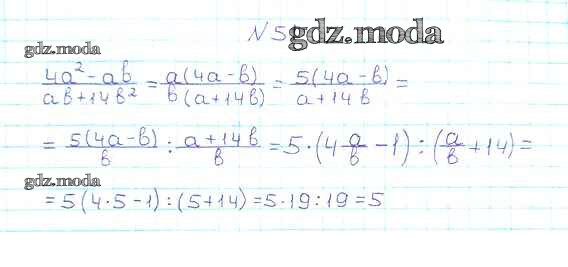 N 5 gdz.moda
gdz.moda
(4a² - ab)/(ab + 14b²) = a(4a - b)/b(a + 14b) = 5(4a - b)/(a + 14b) =
= 5(4a - b)/b : (a + 14b)/b = 5 · (4 a/b - 1) : (a/b + 14) =
gdz.moda
= 5(4·5 - 1) : (5 + 14) = 5·19 : 19 = 5